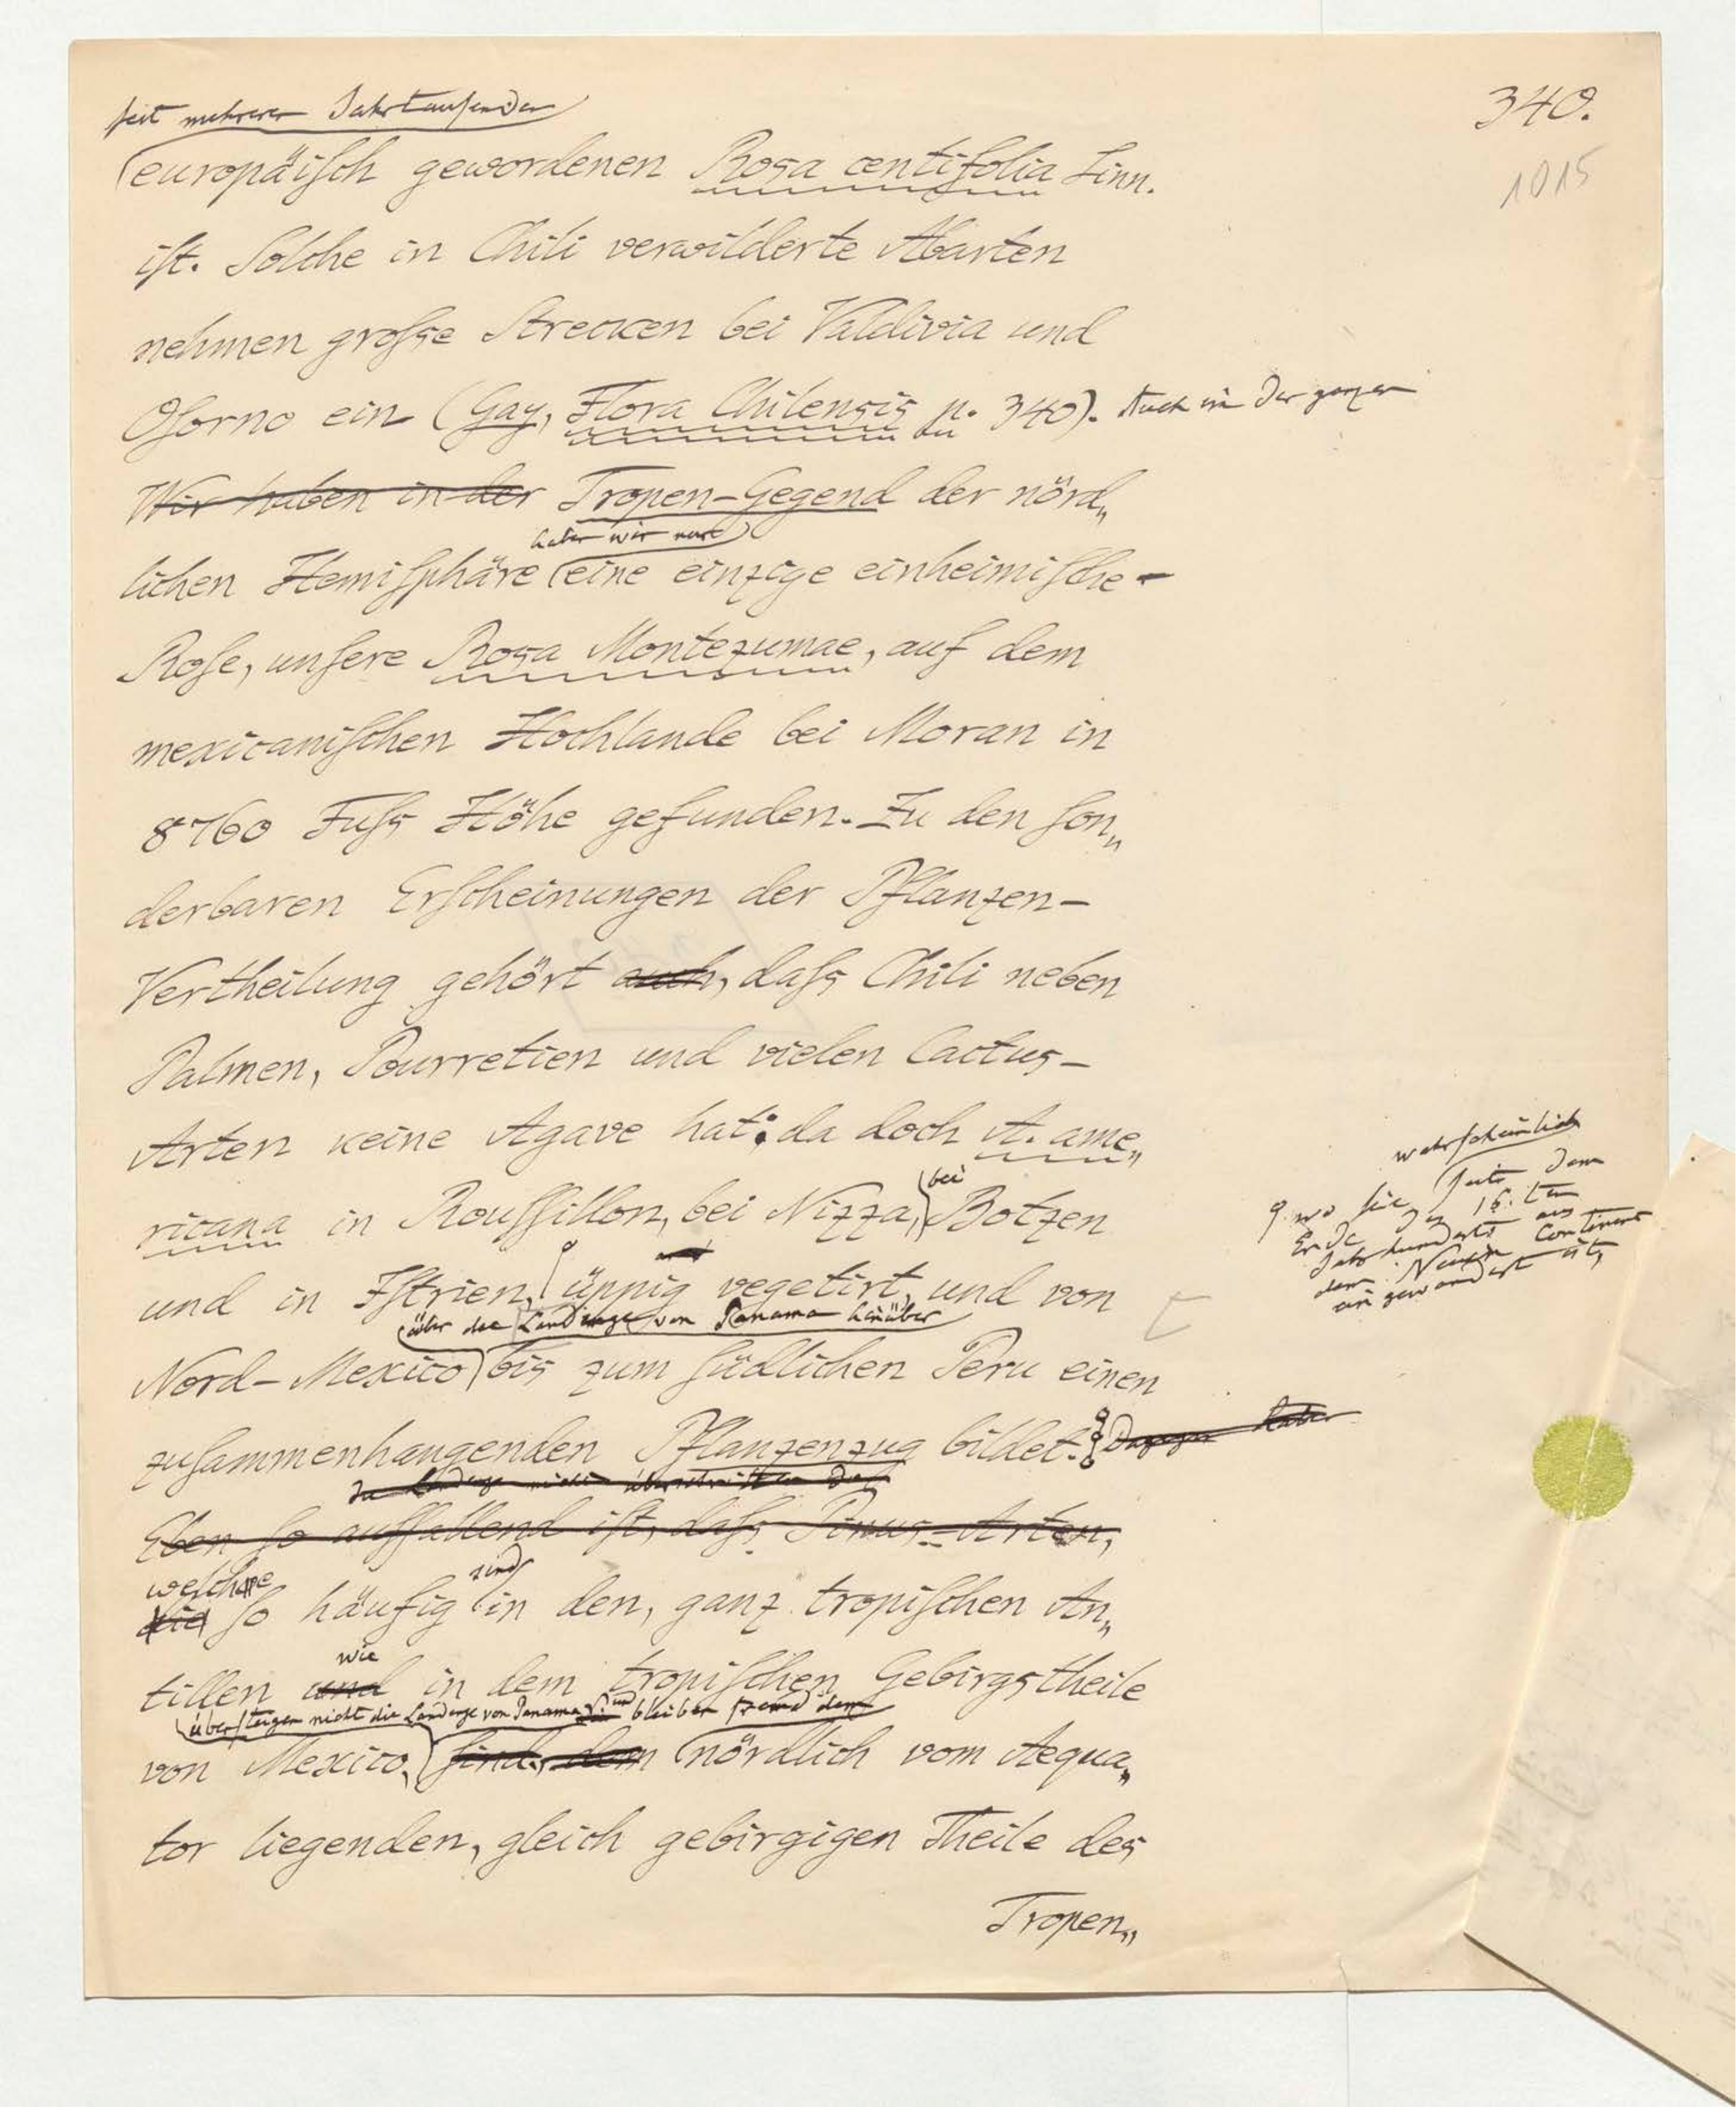 340.
1015
seit mehreren Jahrtausenden
europäiſch gewordenen Rosa centifolia Linn.
iſt. Solche in Chili verwilderte Abarten
nehmen groſse Strecken bei Valdivia und
Oſorno ein (Gay, Flora Chilensis p. 340). Auch in der ganzen
Wir haben in der Tropen-Gegend der nörd„
haben wir nur
lichen Hemiſphäre eine einzige einheimiſche
Roſe, unſere Rosa Montezumae, auf dem
mexicaniſchen Hochlande bei Moran in
8760 Fuſs Höhe gefunden. Zu den ſon„
derbaren Erſcheinungen der Pflanzen-
Vertheilung gehört auch, daſs Chili neben
Palmen, Pourretien und vielen Cactus-
Arten keine Agave hat; da doch A. ame„
bei
ricana in Rouſſillon, bei Nizza, Botzen
wahrſcheinlich
wo ſie ſeit dem
Ende des 16.ten
Jahrhunderts aus
dem Neuen Continent
eingewandert iſt,
und in Iſtrien, üppig vegetirt, und von
über die Landenge von Panama hinüber
Nord-Mexico bis zum ſüdlichen Peru einen
zuſammenhangenden Pflanzenzug bildet. Dagegen haben
die Landenge nicht überschritten daß
Eben ſo auffallend iſt, daſs Pinus-Arten,
welche sind
die ſo häufig in den, ganz tropiſchen An„
wie
tillen und in dem tropiſchen Gebirgstheile
überſteigen nicht die Landenge von Panama und bleiben fremd dem
von Mexico, ſind, dem nördlich vom Aequa„
tor liegenden, gleich gebirgigen Theile des
Tropen„